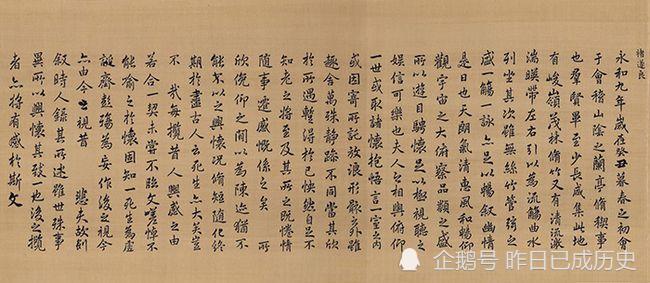 褚遂良
永和九年歲在癸丑暮春之初會
于會稽山陰之蘭亭脩稧事
也羣賢畢至少長咸集此地
有峻嶺茂林脩竹又有清流激
湍暎帶左右引以為流觴曲水
列坐其次雖無絲竹管弦之
盛一觴一詠亦足以暢叙幽情
是日也天朗氣清惠風和暢仰
觀宇宙之大俯察品類之盛
所以遊目騁懷足以極視聽之
娛信可樂也夫人之相與俯仰
一世或取諸懷抱悟言一室之內
或因寄所託放浪形骸之外雖
趣舍萬殊靜躁不同當其欣
於所遇蹔得於己怏然自足不
知老之將至及其所之既惓情
隨事遷感慨係之矣 所
欣俛仰之間以為陳迹猶不
能不以之興懷況脩短隨化終
期於盡古人云死生亦大矣豈
不 哉每攬昔人興感之由
若合一契未嘗不臨文嗟悼不
能喻之於懷固知一死生為虛
誕齊彭殤為妄作後之視今
亦由今之視昔 悲夫故列
叙時人錄其所述雖世殊事
異所以興懷其致一也後之攬
者亦將有感於斯文
企鹅号 昨日已成历史